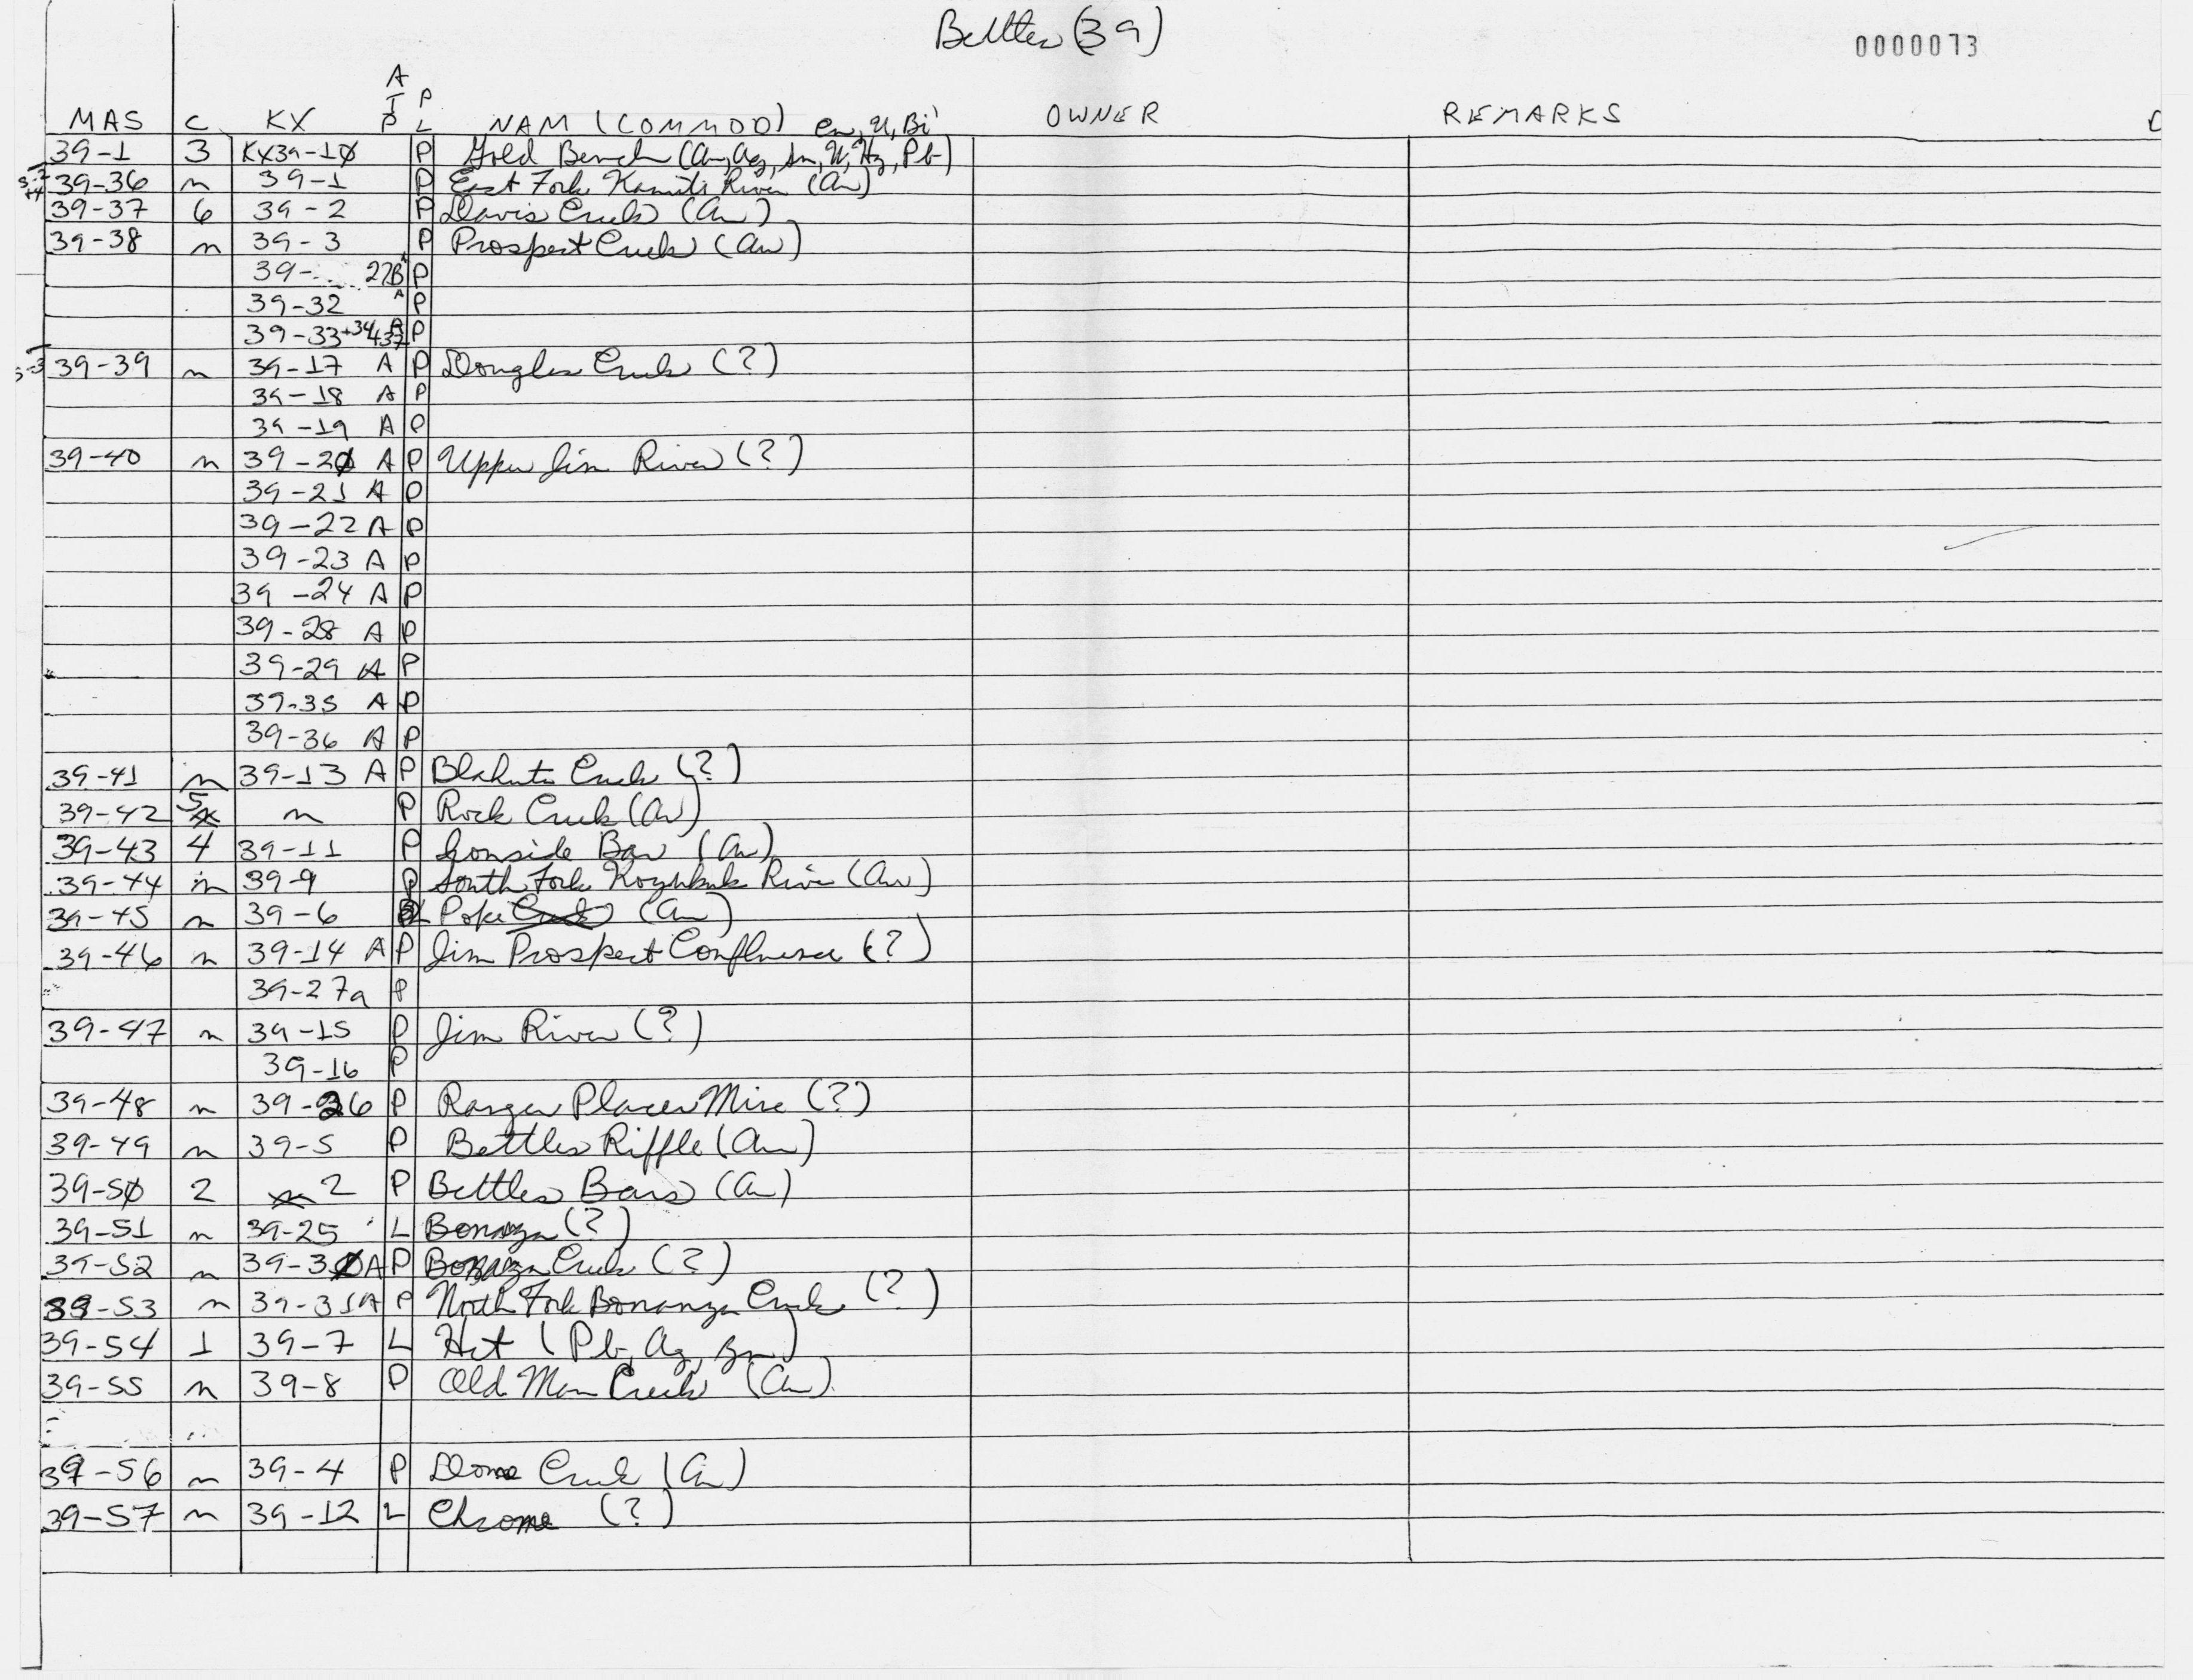 Bettles (39)
0000073
A
T P
MAS C KX P L NAM (COMMOD) Cu, U, Bi OWNER REMARKS
39-1 3 KX39-10 P Gold Bench (Au, Ag, Sn, U, Hg, Pb)
39-36 n 39-1 P East Fork River (Au)
39-37 6 39-2 P Davis Creek (Au)
39-38 n 39-3 P Prospect Creek (Au)
39- 27B P
39-32 A P
39-33 +34 +37 A P
39-39 n 39-17 A P Douglas Creek (?)
39-18 A P
39-19 A P
39-40 n 39-20 A P Upper Jim River (?)
39-21 A P
39-22 A P
39-23 A P
39-24 A P
39-28 A P
39-29 A P
39-35 A P
39-36 A P
39-41 n 39-13 A P Creek (?)
39-42 5 n P Rock Creek (Au)
39-43 4 39-11 P Ironside Bar (Au)
39-44 n 39-9 P South Fork Koyukuk River (Au)
39-45 n 39-6 L Pope Creek (Au)
39-46 n 39-14 A P Jim Prospect Confluence (?)
39-27a P
39-47 n 39-15 P Jim River (?)
39-16 P
39-48 n 39-26 P Ranger Placer Mine (?)
39-49 n 39-5 P Bettles Riffle (Au)
39-50 2 2 P Bettles Bars (Au)
39-51 n 39-25 L Bonanza (?)
39-52 n 39-30 A P Bonanza Creek (?)
39-53 n 39-31 A P North Fork Bonanza Creek (?)
39-54 1 39-7 L Hot (Pb, Ag, Zn)
39-55 n 39-8 P Old Man Creek (Au)
39-56 n 39-4 P Dome Creek (Au)
39-57 n 39-12 L Chrome (?)